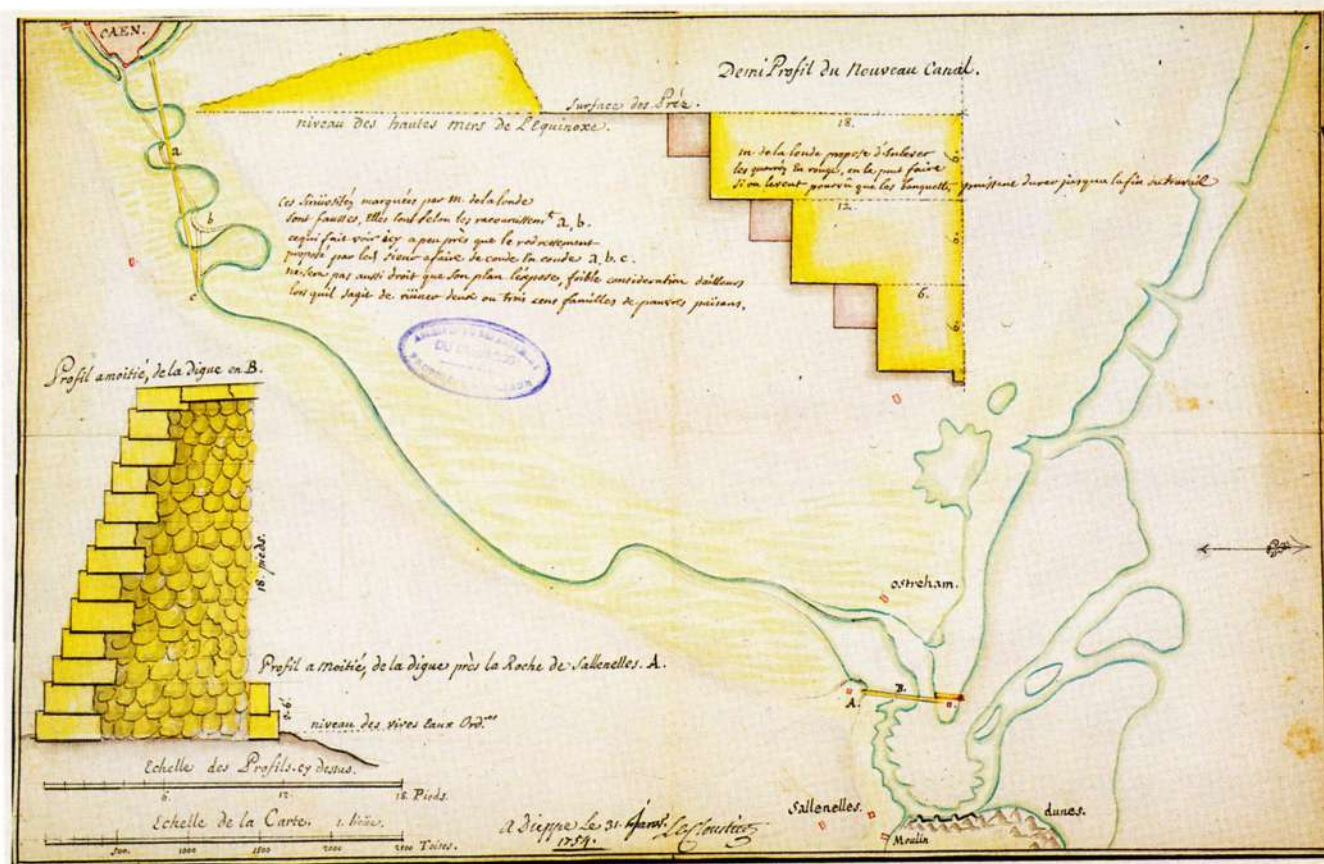 CAEN.
Demi Profil du Nouveau Canal.
Surface des Préz.
niveau des hautes mers de L'Equinoxe.
18.
6.
m. de la londe propose d'Enlever
les quarrés En rouge, on le peut faire
si on le veut pourvû que les banquettes puissent durer jusqua la fin du travail
12.
6.
6.
6.
a
b
c
Ces Sinüositéz marquées par M. de la londe
sont fausses, Elles sont selon les racourcissem.t a, b.
ce qui fait voir icy a peu près que le redressement
proposé par led. sieur a faire de coude En coude a, b, c.
ne sera pas aussi droit que son plan l'expose, foible consideration dailleurs
lors quil sagit de rüiner deux ou trois cens familles de pauvres païsans.
DU CALVADOS
Profil a moitié, de la digue en B.
18. pieds.
Profil a moitié, de la digue près la Roche de Sallenelles. A.
2-6.
niveau des vives eaux Ord.res
Echelle des Profils. cy dessus.
6. 12. 18. Pieds.
Echelle de la Carte. 1. lieüe.
500. 1000 1500 2000 2500 Toises.
A Dieppe Le 31.
1754.
Ostreham.
A.
B.
Sallenelles.
Moulin
dunes.